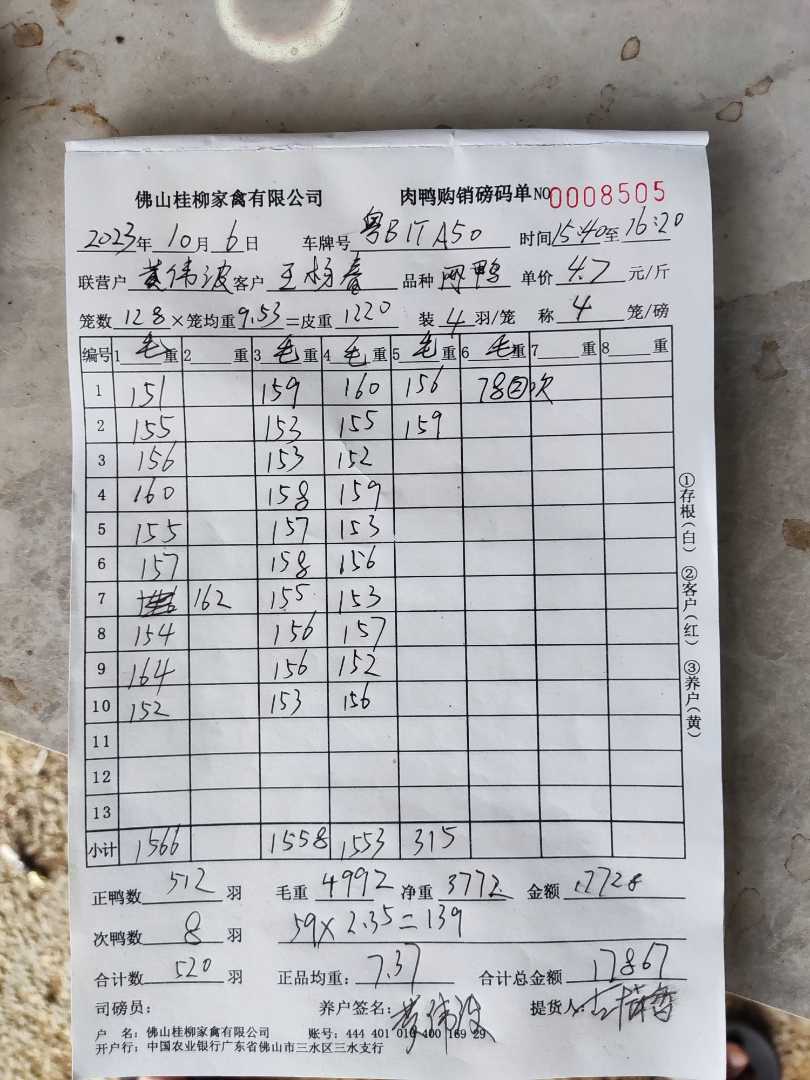 佛山桂柳家禽有限公司 肉鸭购销磅码单 NO 0008505
2023年 10月 6日 车牌号 粤B1TA50 时间 15:40至 16:20
联营户 黄伟波 客户 王杨春 品种 网鸭 单价 4.7 元/斤
笼数 128 × 笼均重 9.53 = 皮重 1220 装 4 羽/笼 称 4 笼/磅
编号 1 毛 重 2 重 3 毛 重 4 毛 重 5 毛 重 6 毛 重 7 重 8 重
1 151 159 160 156 78②次
2 155 153 155 159
3 156 153 152
4 160 158 159
5 155 157 153
6 157 158 156
7 162 155 153
8 154 156 157
9 164 156 152
10 152 153 156
11
12
13
小计 1566 1558 1553 315
①存根(白) ②客户(红) ③养户(黄)
正鸭数 512 羽 毛重 4992 净重 3772 金额 17728
次鸭数 8 羽 59×2.35=139
合计数 520 羽 正品均重: 7.37 合计总金额 17867
司磅员: 养户签名: 黄伟波 提货人:
户 名: 佛山桂柳家禽有限公司 账号: 444 401 010 400 169 29
开户行: 中国农业银行广东省佛山市三水区三水支行